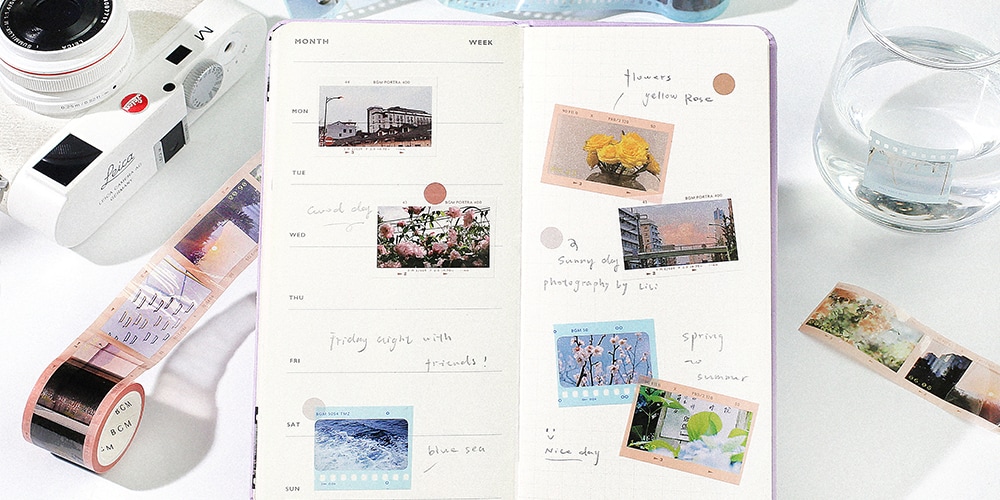 MONTH
WEEK
MON
TUE
WED
THU
FRI
SAT
SUN
BGM PORTRA 400
Good day
BGM PORTRA 400
Friday night with
friends!
BGM 5054 TMZ
blue sea
flowers
yellow Rose
BGM PORTRA 400
Sunny day
photography by Lili
BGM 50
spring
sumour
Nice day
M
Leica
Leica
LEICA CAMERA AG
GERMANY
BGM
BGM